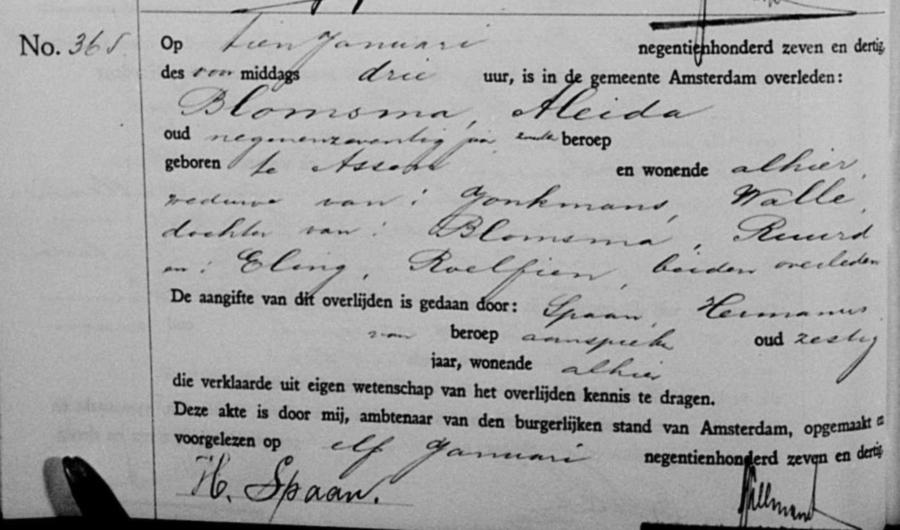 No. 365 Op tien Januari negentienhonderd zeven en dertig,
des voor middags drie uur, is in de gemeente Amsterdam overleden:
Blomsma, Aleida
oud negenenzeventig jaar zonder beroep
geboren te Assen en wonende alhier,
weduwe van: Jonkmans, Walle,
dochter van: Blomsma, Ruurd
en: Eling, Roelfien, beiden overleden
De aangifte van dit overlijden is gedaan door: Spaan, Hermanus
van beroep aanspreker oud zestig
jaar, wonende alhier
die verklaarde uit eigen wetenschap van het overlijden kennis te dragen.
Deze akte is door mij, ambtenaar van den burgerlijken stand van Amsterdam, opgemaakt en
voorgelezen op elf Januari negentienhonderd zeven en dertig
H. Spaan.